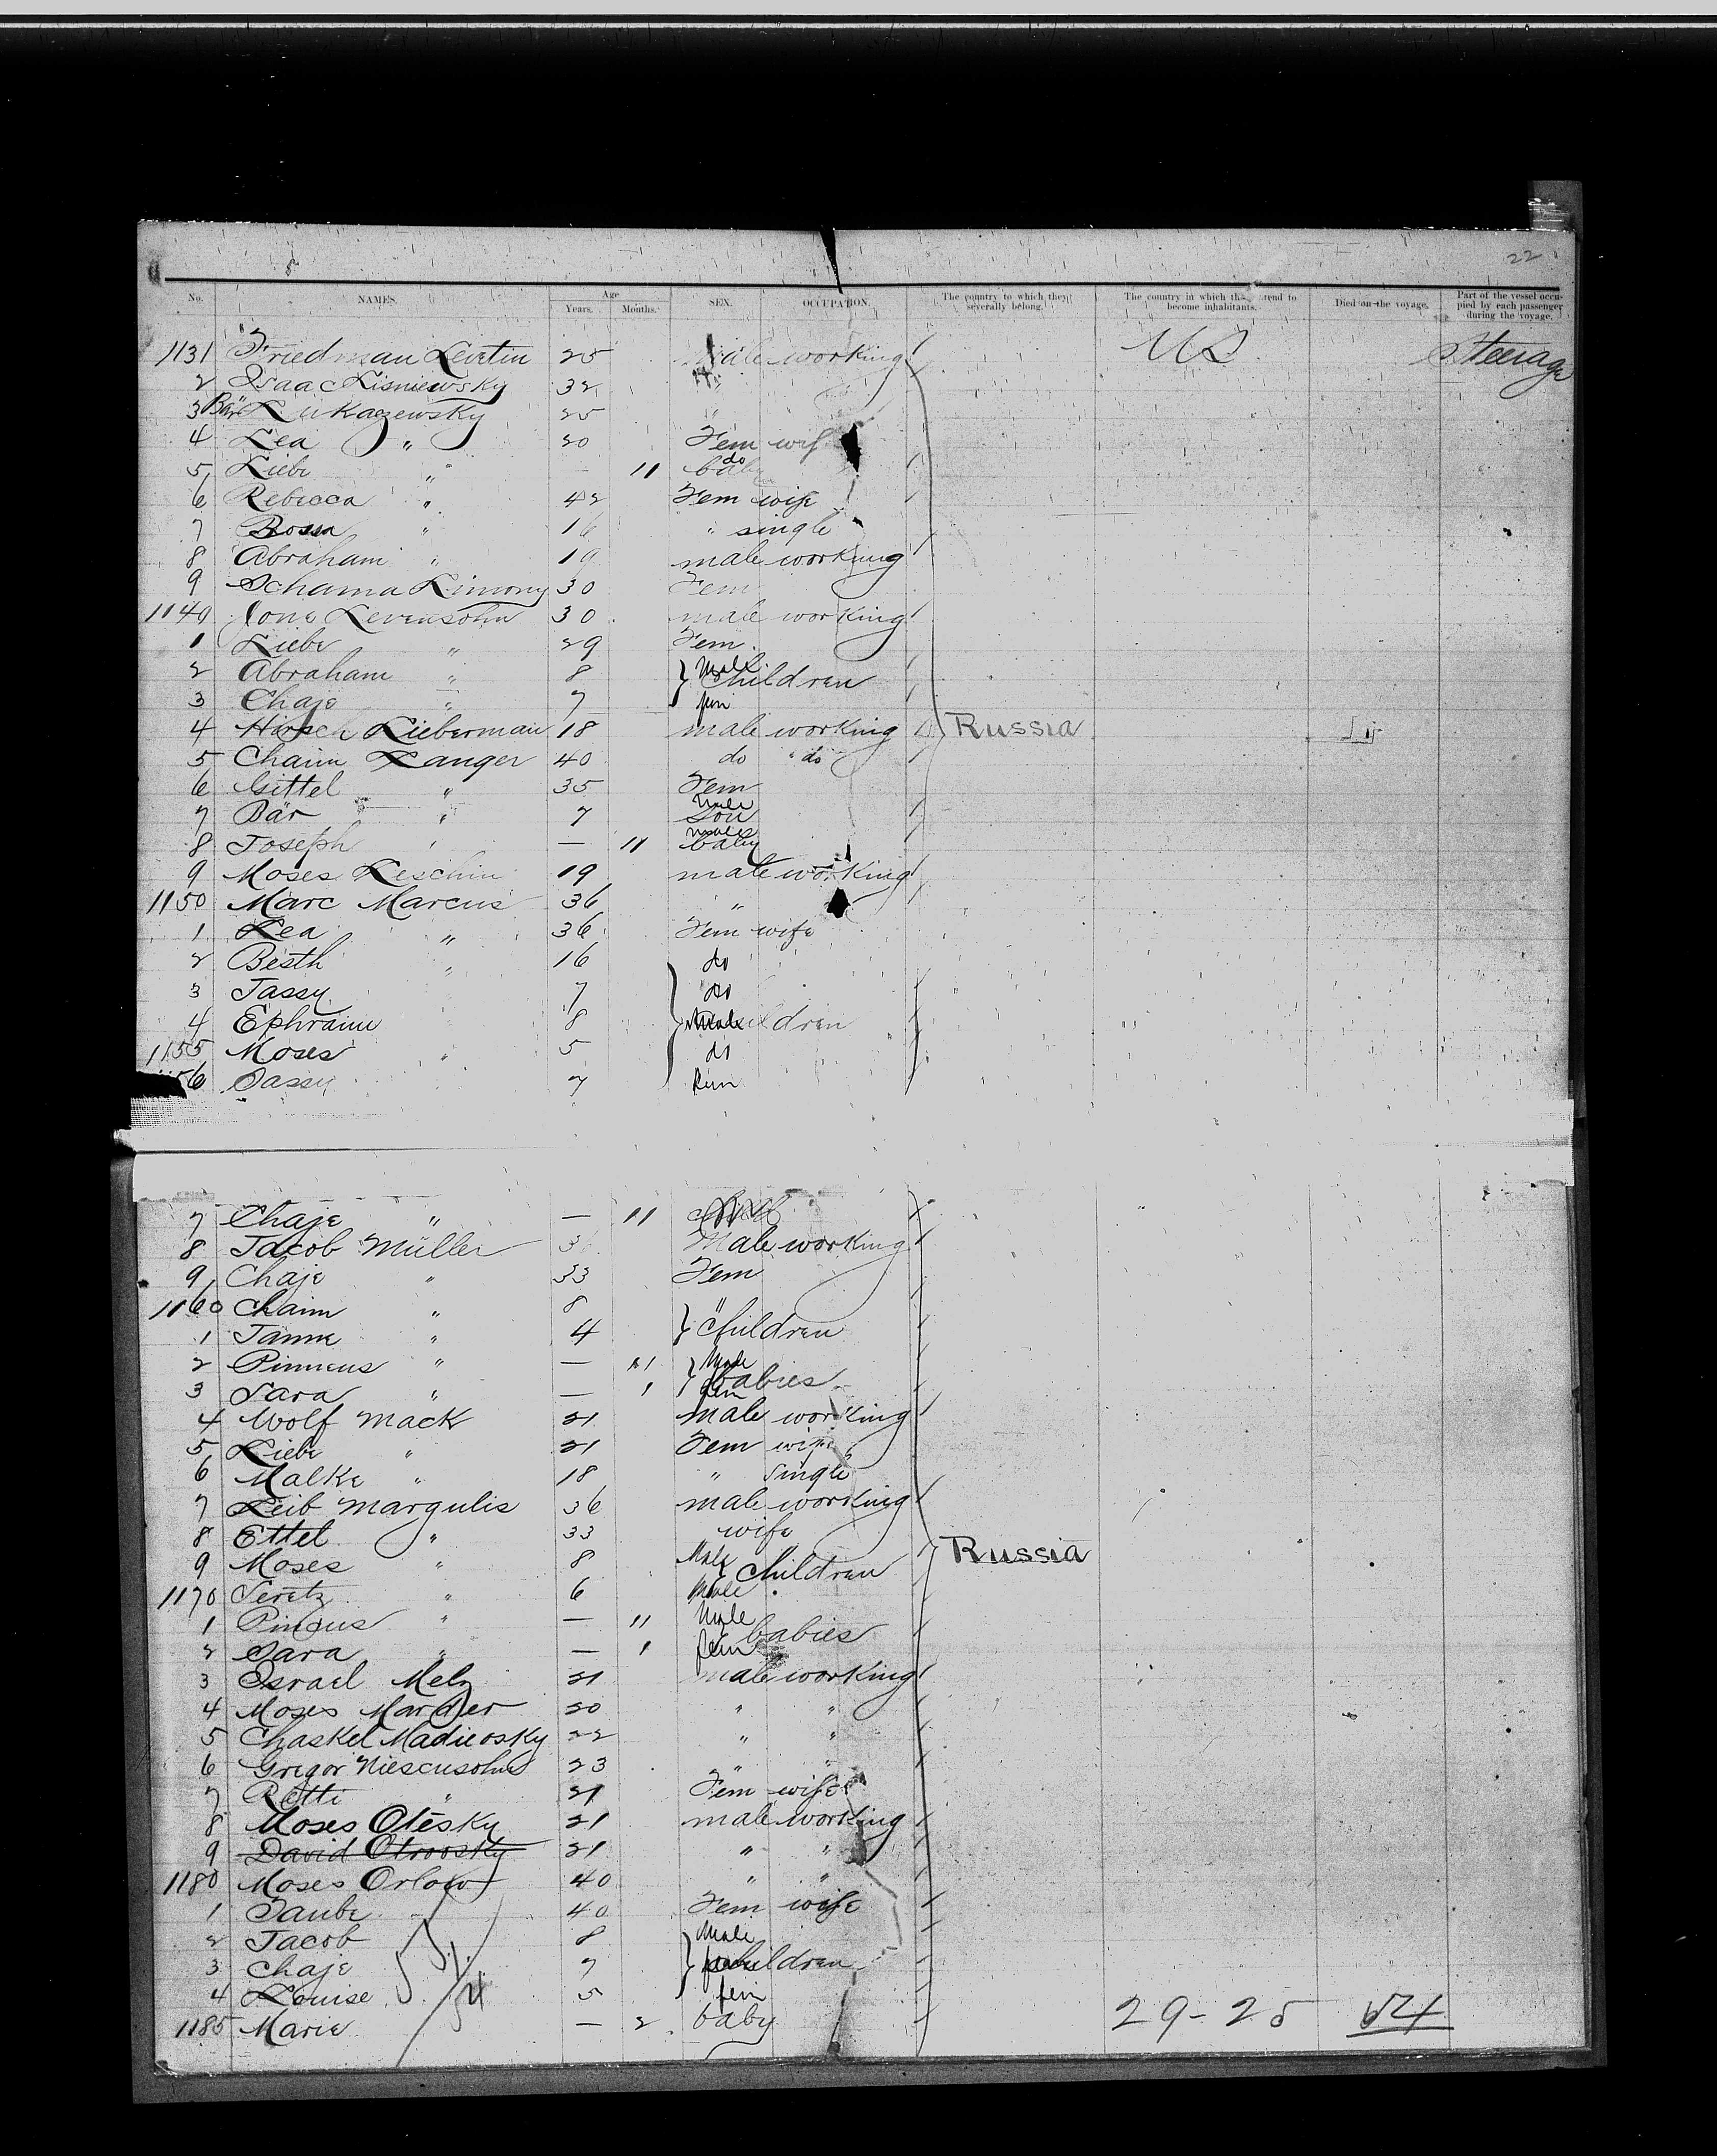 22
No. NAMES. Age Years. Months. SEX. OCCUPATION. The country to which they severally belong. The country in which they intend to become inhabitants. Died on the voyage. Part of the vessel occupied by each passenger during the voyage.
1131 Friedman Levitin 25 male working US Steerage
2 Isaac Lisniewsky 32
3 Bär Lukaczewsky 25 "
4 Lea " 20 Fem wife
5 Liebe " — 11 do baby
6 Rebecca " 42 Fem wife
7 Rossa " 16 " single
8 Abraham " 19 male working
9 Schama Limony 30 Fem
1140 Jone Levensohn 30 male working
1 Liebe " 29 Fem.
2 Abraham " 8 Male Children
3 Chaje " 7 fem
4 Hirsch Lieberman 18 male working Russia
5 Chaim Langer 40 do do
6 Gittel " 35 Fem
7 Bär " 7 Male Son
8 Joseph " — 11 males baby
9 Moses Leschin 19 male working
1150 Marc Marcus 36 "
1 Lea " 36 Fem wife
2 Besth " 16 do
3 Tassy 7 do
4 Ephraim 8 Male children
1155 Moses " 5 do
1156 Sassy 7 fem
7 Chaje " — 11
8 Jacob Müller 3 Male working
9 Chaje " 33 Fem
1160 Chaim " 8 "
1 Janne " 4 Children
2 Pinncus " — 11 Male babies
3 Sara " — 1 fem
4 Wolf Mack 21 male working
5 Liebe " 21 Fem wife
6 Malke " 18 " single
7 Leib Margulis 36 male working
8 Ettel " 33 wife Russia
9 Moses " 8 Male Children
1170 Seretz " 6 Male
1 Pincus " — 11 Male babies
2 Sara " — 1 fem
3 Israel Melz 21 male working
4 Moses Marder 20 " "
5 Chaskel Madieosky 22 " "
6 Gregor Niescusohn 23 " "
7 Rotti " 21 Fem wife
8 Moses Otesky 21 male working
9 David Otrovsky 21 " "
1180 Moses Orlow 40 " "
1 Taube 40 Fem wife
2 Jacob 8 Male
3 Chaje 7 children
4 Louise 5 fem
1185 Marie — 2 baby 29-25 54